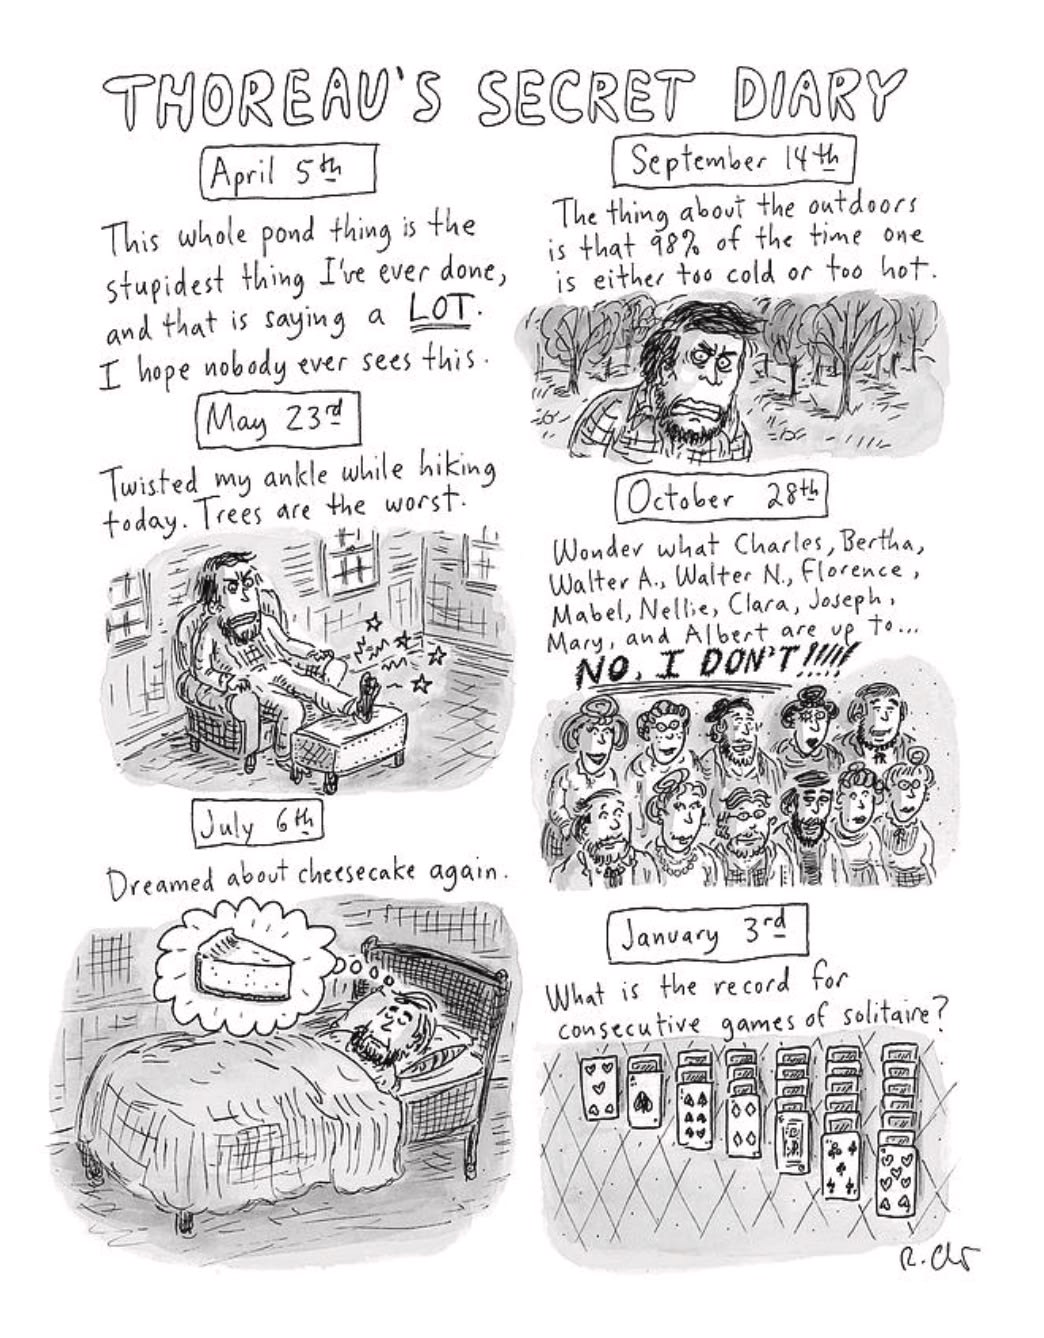 THOREAU'S SECRET DIARY
April 5th
This whole pond thing is the
stupidest thing I've ever done,
and that is saying a LOT.
I hope nobody ever sees this.
May 23rd
Twisted my ankle while hiking
today. Trees are the worst.
July 6th
Dreamed about cheesecake again.
September 14th
The thing about the outdoors
is that 98% of the time one
is either too cold or too hot.
October 28th
Wonder what Charles, Bertha,
Walter A., Walter N., Florence,
Mabel, Nellie, Clara, Joseph,
Mary, and Albert are up to...
NO, I DON'T!!!!!
January 3rd
What is the record for
consecutive games of solitaire?
R. Ch